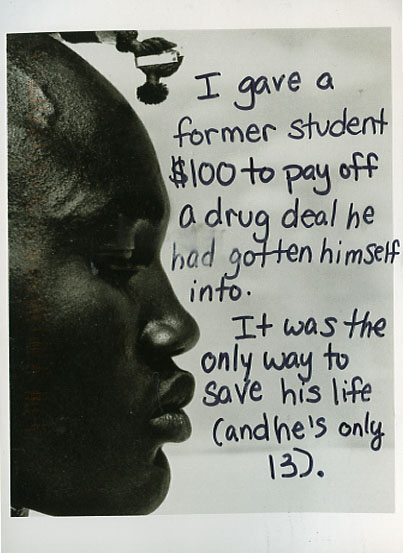 I gave a
former student
$100 to pay off
a drug deal he
had gotten himself
into.
It was the
only way to
save his life
(and he's only
13).